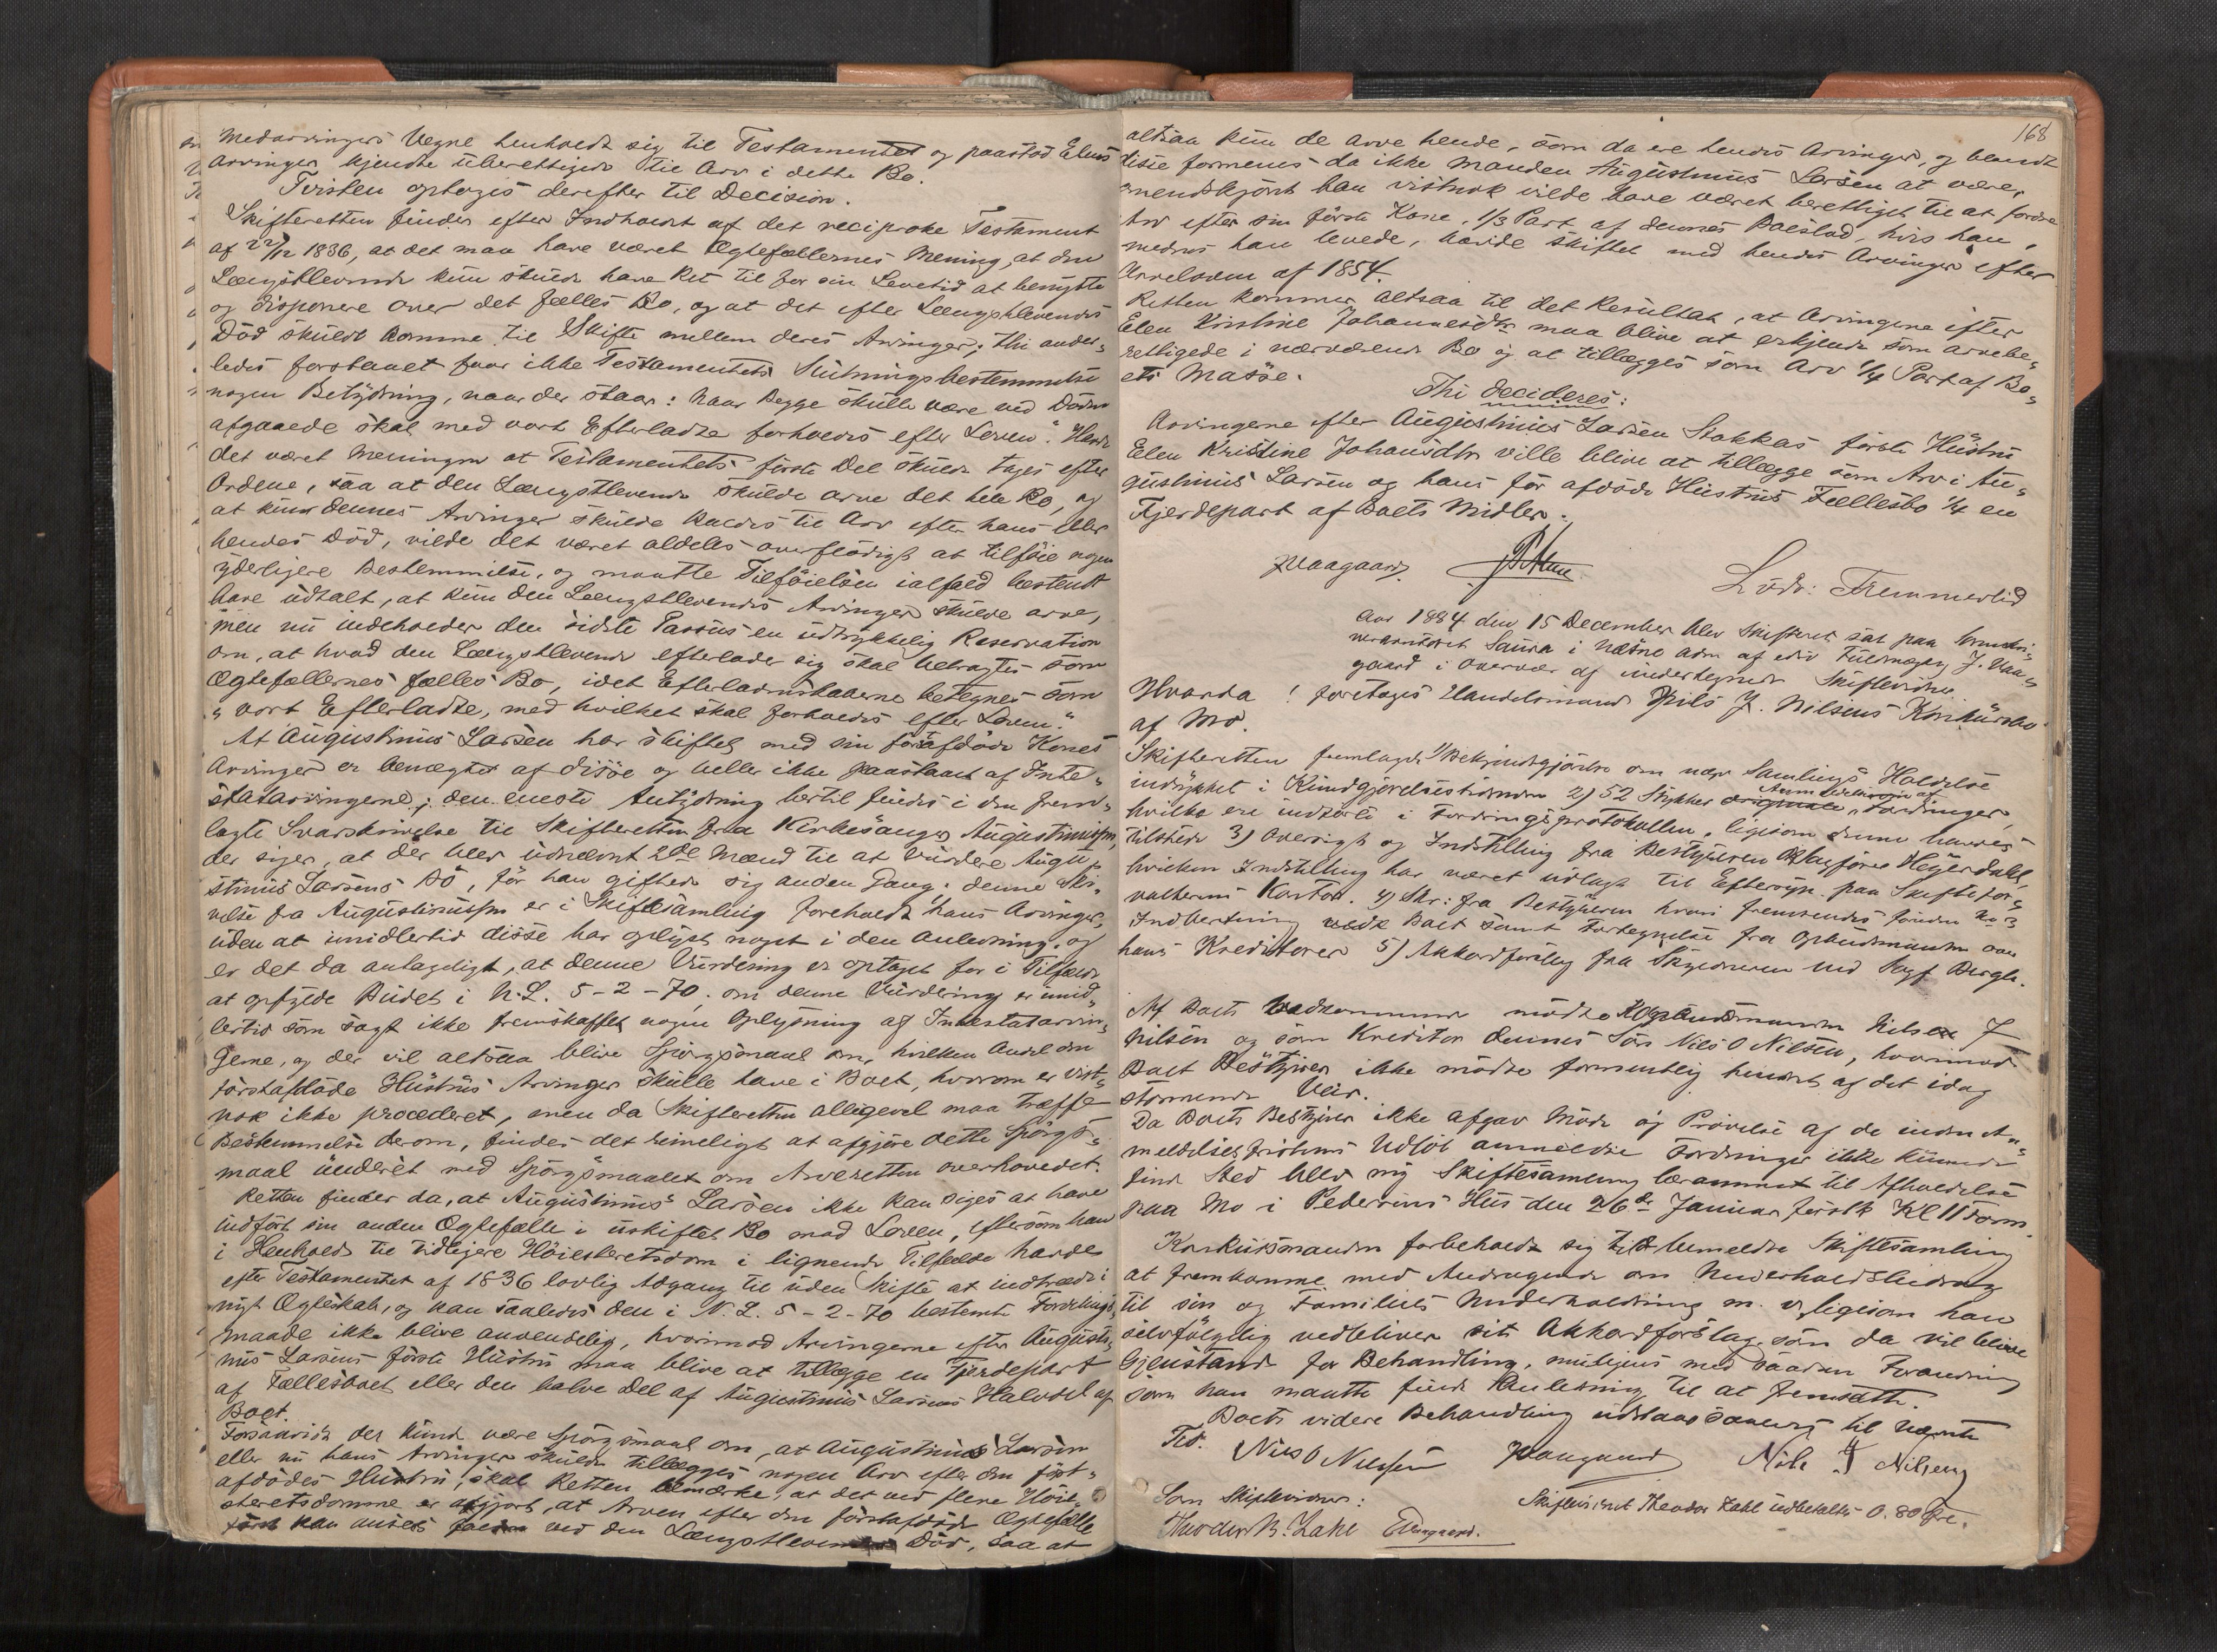 Medarvingers Vegne henholdt sig til Testamentet og paastod Elens
Arvinger kjendte uberettigede til Arv i dette Bo.
Tvisten optoges derefter til Decision.
Skifteretten finder efter Indholdet af det reciproke Testament
af 22/12 1836, at det maa have været Ægtefællernes Mening, at den
Længstlevende kun skulde have Ret til for sin Levetid at benytte
og disponere over det fælles Bo, og at det efter Længstlevendes
Död skulde komme til Skifte mellem deres Arvinger; thi ander-
ledes forstaaet faar ikke Testamentets Slutningsbestemmelse
nogen Betydning, naar der staar: "naar Begge skulle være ved Döden
afgaaede skal med vort Efterladte forholdes efter Loven". Havde
det været Meningen at Testamentets förste Del skulde tages efter
Ordene, saa at den Længstlevende skulde arve det hele Bo, og
at kun dennes Arvinger skulde kaldes til Arv efter hans eller
hendes Död, vilde det været aldeles overflödigt at tilföie nogen
yderligere Bestemmelse, og maatte Tilföielsen ialfald bestemt
have udtalt, at kun den Længstlevendes Arvinger skulde arve,
men nu indeholder den sidste Passus en udtrykkelig Reservation
om, at hvad den Længstlevende efterlader sig skal betragtes som
Ægtefællernes fælles Bo, idet Efterladenskaberne betegnes som
"vort Efterladte, med hvilket skal forholdes efter Loven."
At Augustinus Larsen har skiftet med sin förstafdöde Kones
Arvinger er benægtet af disse og heller ikke paastaaet af Inte-
statarvingerne; den eneste Antydning hertil findes i den frem-
lagte Svarskrivelse til Skifteretten fra Kirkesanger Augustinussen,
der siger, at der blev udnævnt 2de Mænd til at vurdere Augu-
stinus Larsens Bö, för han giftede sig anden Gang; denne Skri-
velse fra Augustinussen er i Skiftesamling foreholdt hans Arvinger,
uden at imidlertid disse har oplyst noget i den Anledning, og
er det da antageligt, at denne Vurdering er optaget for i Tilfælde
at opfylde Budet i N.L. 5-2-70; om denne Vurdering er imid-
lertid som sagt ikke fremskaffet nogen Oplysning af Intestatarvin-
gerne, og der vil altsaa blive Spörgsmaal om, hvilken Andel den
förstafdöde Hustrus Arvinger skulle have i Boet, hvorom er vist-
nok ikke procederet, men da Skifteretten alligevel maa træffe
Bestemmelse derom, findes det rimeligt at afgjöre dette Spörgs-
maal underet med Spörgsmaalet om Arveretten overhovedet.
Retten finder da, at Augustinus Larsen ikke kan siges at have
indfört sin anden Ægtefælle i uskiftet Bo mod Loven, eftersom han
i Henhold til tidligere Höiesteretsdom i lignende Tilfælde havde
efter Testamentet af 1836 lovlig Adgang til uden Skifte at indtræde i
nyt Ægteskab, og kan saaledes den i N. L. 5-2-70 bestemte Fordelings-
maade ikke blive anvendelig, hvorimod Arvingerne efter Augusti-
nus Larsens förste Hustru maa blive at tillægge en Fjerdepart
af Fællesboet eller den halve Del af Augustinus Larsens Halvdel af
Boet.
Forsaavidt der kunde være Spörgsmaal om, at Augustinus Larsen
eller nu hans Arvinger skulde tillægges nogen Arv efter den först-
afdödes Hustru, skal Retten bemærke, at det ved flere Höie-
steretsdomme er afgjort, at Arven efter den förstafdöde Ægtefælle
först kan ansees falden ved den Længstlevendes Död, saa at
168
altsaa kun de arve hende, som da ere hendes Arvinger, og blandt
disse formenes da ikke Manden Augustinus Larsen at være,
omendskjönt han vistnok vilde have været berettiget til at fordre
Arv efter sin förste Kone, 1/3 Part af dennes Boeslod, hvis han,
medens han levede, havde skiftet med hendes Arvinger efter
Arveloven af 1854.
Retten kommer altsaa til det Resultat, at Arvingerne efter
Elen Kristine Johannesdtr maa blive at erkjende som arvebe-
rettigede i nærværende Bo og at tillægges som Arv 1/4 Part af Bo-
ets Masse.
Thi decideres:
Arvingerne efter Augustinus Larsen Stokkas förste Hustru
Elen Kristine Johansdtr ville blive at tillægge som Arv i Au-
gustinus Larsen og hans för afdöde Hustrus Fællesbo 1/4 en
Fjerdepart af Boets Midler.
Ludv: Tremmerlid
Aar 1884 den 15 December blev Skifteret sat paa
i Næsne adm af edsv Fuldmægtig J. Vaa-
gaard i Overvær af undertegnede Skiftevidner
Hvorda! foretoges Handelsmand Nils J. Nilsens Konkursbo
af Mo.
Skifteretten fremlagde 1) Bekjendtgjörelse om nær Samlings Holdelse
indrykket i Kundgjörelsestidende 2) 52 Stykker Anmeldelser af Fordringer,
hvilke ere indförte i Fordringsprotokollen, ligesom denne havdes
tilstede 3) Oversigt og Indstilling fra Bestyreren Sagförer Heyerdahl,
hvilken Indstilling har været udlagt til Eftersyn paa Skiftefor-
valterens Kontor. 4) Skr: fra Bestyreren hvori fremsendes
Indberetning vedk Boet samt Fortegnelse fra Opbudsmanden om
hans Kreditorer 5) Akkordforslag fra Skyldneren ved Sagf Bergh.
Af Boets Vedkommende mödte Opbudsmanden Nils J
Nilsen og som Kreditor dennes Sön Nils O Nilsen, hvorimod
Boet Bestyrer ikke mödte formentlig hindret af det idag
stormende Veir.
Da Boets Bestyrer ikke afgav Möde og Prövelse af de inden An-
meldelsesfristens Udlöb anmeldte Fordringer ikke kunde
finde Sted blev ny Skiftesamling berammet til Afholdelse
paa Mo i Pedersens Hus den 26de Januar förstk Kl 11 Form.
Konkursmanden forbeholdt sig til bemeldte Skiftesamling
at fremkomme med Andragende om Underholdsbidrag
til sin og Families Underholdning m. v, ligesom han
selvfölgelig vedbliver sit Akkordforslag som da vil blive
Gjenstand for Behandling, muligens med saadan Forandring
som han maatte finde Anledning til at fremsætte.
Boets videre Behandling udstaar saalænge til Nævnte
Tid.
Nils O Nilssen Vaagaard Nils J Nilsen
Som Skiftevidner:
Skiftevidnet Theodor Zahl udbetaltes 0.80 Öre.
Theodor B. Zahl